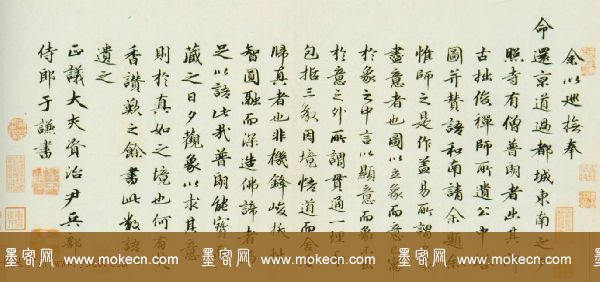 余以巡撫奉
命還京道過都城東南之夕
照寺有僧普朗者出其師
古拙俊禪師所遺公中塔
圖并贊語和南請余題余
惟師之是作蓋易所謂
盡意者也圖以立象而意已寓
於象之中言以顯意而象不出
於意之外所謂貫通一理
包括三教因境悟道而會
歸真者也非機鋒峻拔性
智圓融而深造佛諦者焉
足以語此哉普朗能寶而
藏之日夕觀象以求其意
則於真如之境也何有
香讚歎之餘書此數語
遺之
正議大夫資治尹兵部
侍郎于謙書
墨客网 www.mokecn.com 墨客网 www.mokecn.com 墨客网 www.mokecn.com